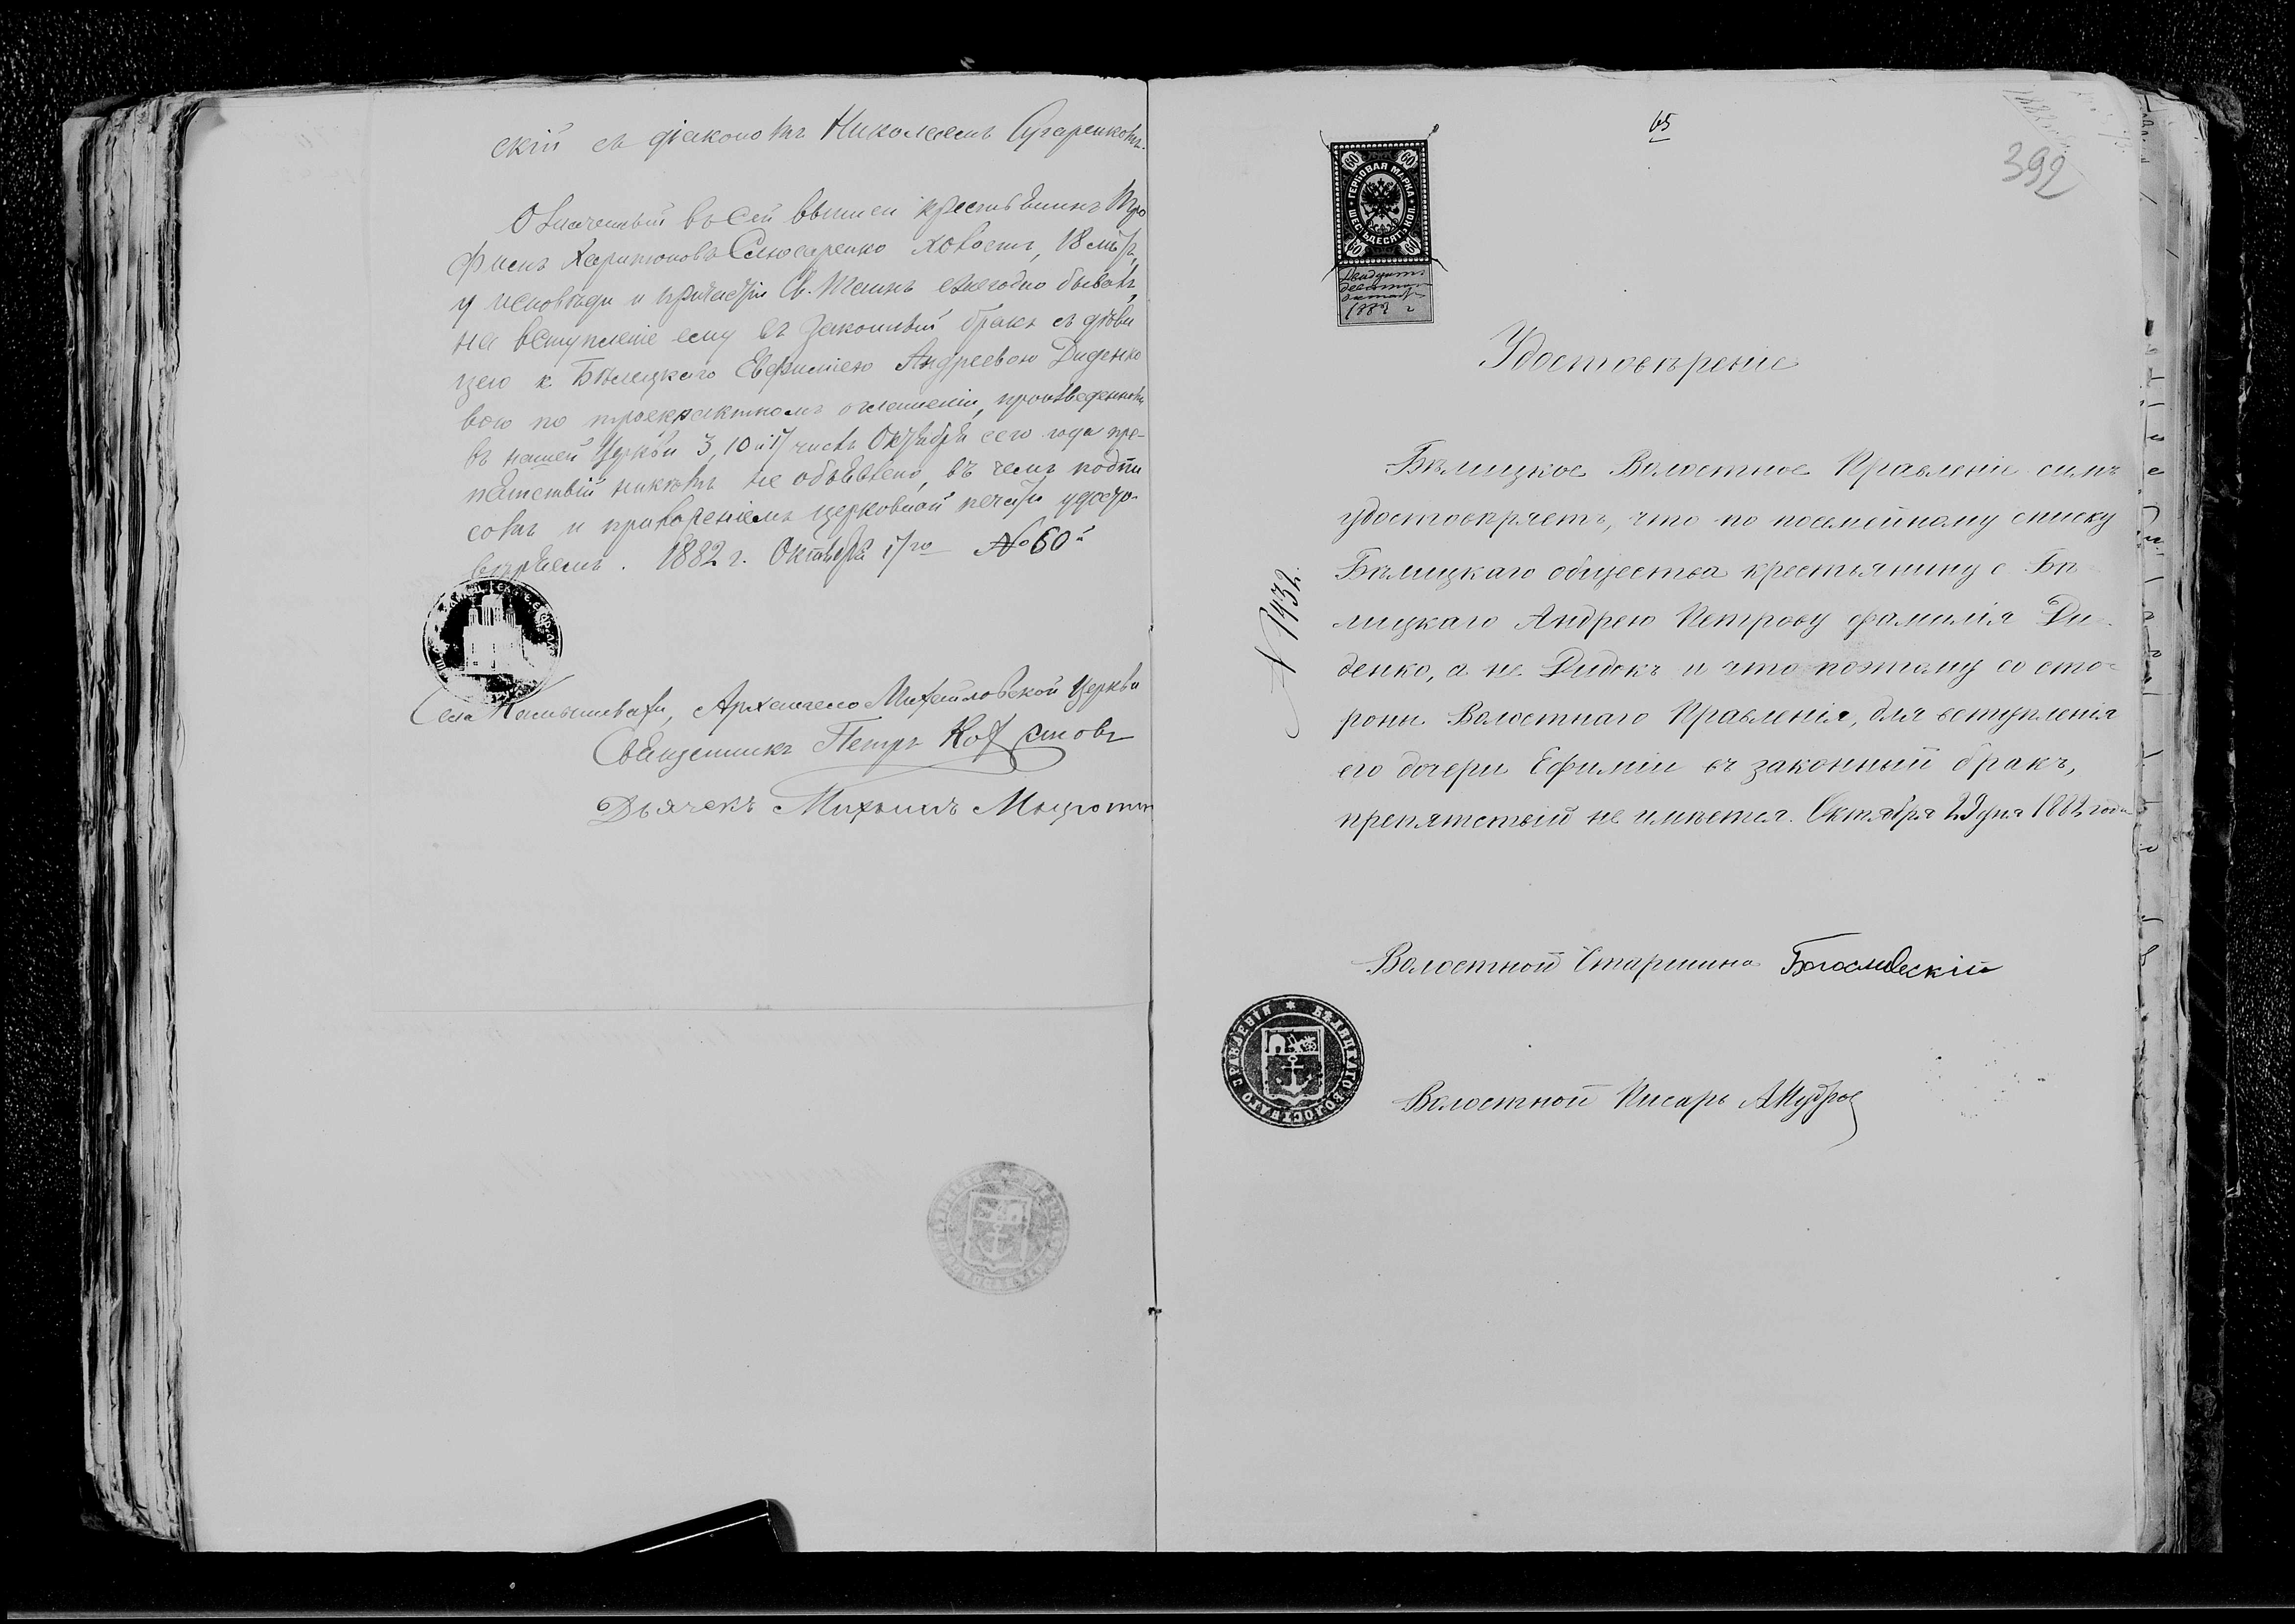 скій съ діакономъ Николаемъ
Означенный въ сей выписи крестьянинъ Тро
фимъ Харитоновъ Слюсаренко холостъ, 18 лѣтъ,
у исповѣди и причастія Св. Таинъ ежегодно бываетъ,
на вступленіе ему въ законный бракъ съ дѣви
цею с. Бѣлицкаго Евфиміею Андреевою Диденко
вою по троекратномъ оглашеніи, произведенномъ
въ нашей Церкви 3, 10 и 17 числъ Октября сего года пре-
пятствій никѣмъ не объявлено, въ чемъ подпи
сомъ и приложеніемъ церковной печати удосто-
вѣряемъ. 1882 г. Октября 17го № 60й
Села Камышевахи, Архангело Михайловской Церкви
Священникъ Петръ
Дьячекъ Михаилъ
65
392
60 60
ГЕРБОВАЯ МАРКА
ШЕСТЬДЕСЯТЪ КОП.
60 60
Двадцать
девятаго
октября
1882 г
Удостовѣреніе
№ 1432.
Бѣлицкое Волостное Правленіе симъ
удостовѣряетъ, что по посемейному списку
Бѣлицкаго общества крестьянину с. Бѣ
лицкаго Андрею Петрову фамилія Ди-
денко, а не Дидокъ и что поэтому со сто-
роны Волостнаго Правленія, для вступленія
его дочери Ефиміи въ законный бракъ,
препятствій не имѣется. Октября 29 дня 1882 года
Волостной Старшина
БѢЛИЦКАГО ВОЛОСТНАГО ПРАВЛЕНІЯ
Волостной Писарь